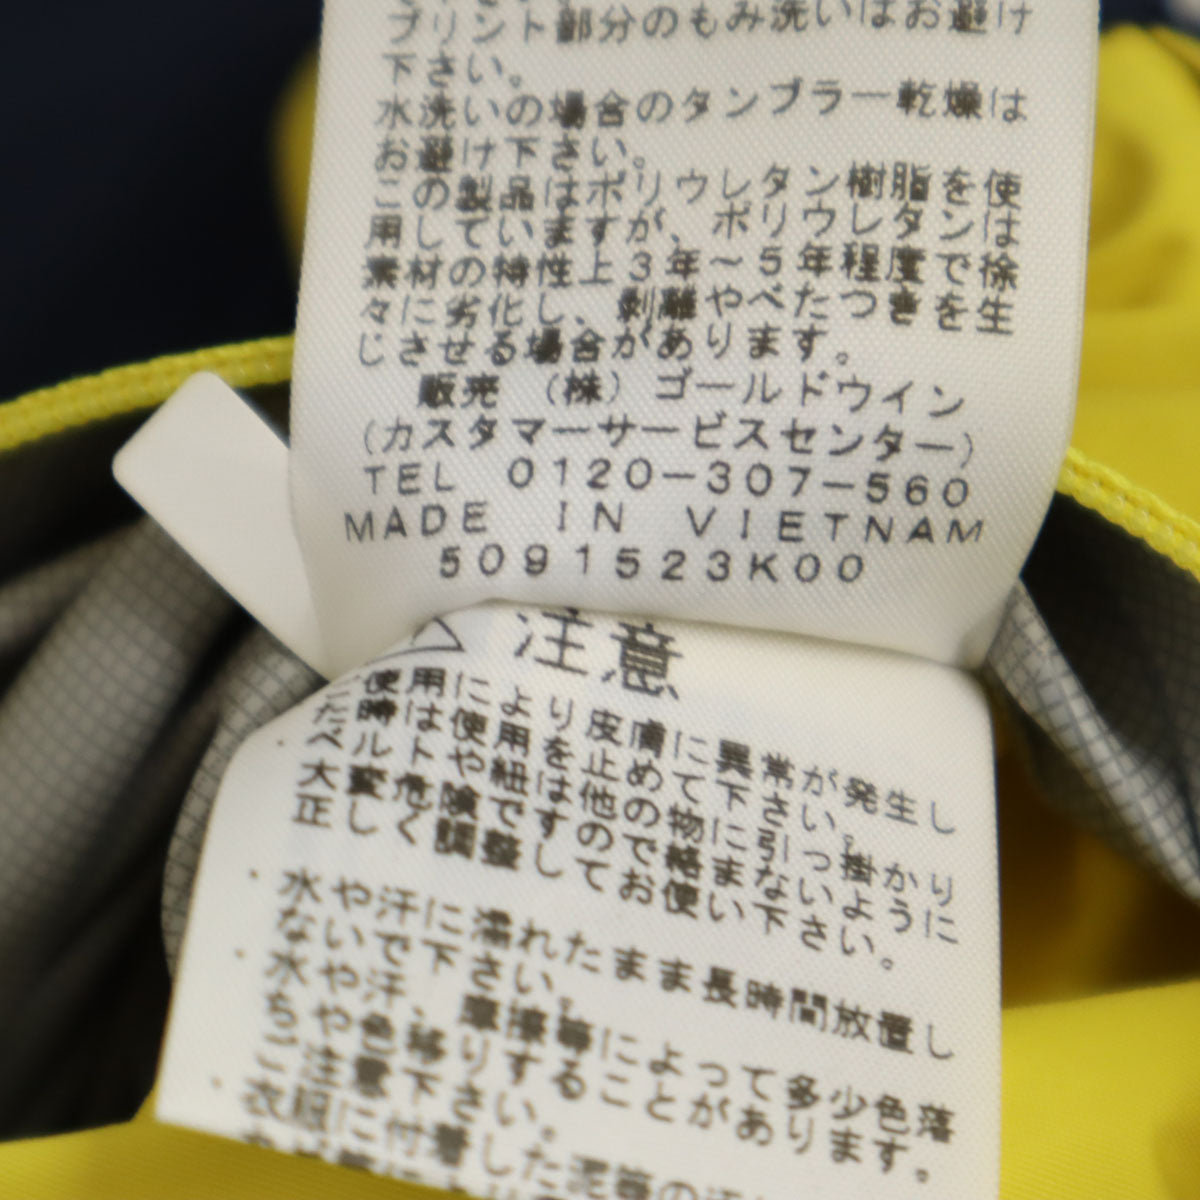 プリント部分のもみ洗いはお避け
下さい。
水洗いの場合のタンブラー乾燥は
お避け下さい。
この製品はポリウレタン樹脂を使
用していますが、ポリウレタンは
素材の特性上3年～5年程度で徐
々に劣化し、剥離やべたつきを生
じさせる場合があります。
販売 (株) ゴールドウイン
(カスタマーサービスセンター)
TEL 0120-307-560
MADE IN VIETNAM
5091523K00
注意
ご使用により皮膚に異常が発生し
た時は使用を止めて下さい。
・ベルトや紐は他の物に引っ掛かり
大変危険ですので絡まないように
正しく調整してお使い下さい。
・水や汗に濡れたまま長時間放置し
ないで下さい。
・水や汗、摩擦等によって多少色落
ちや色移りすることがあります。
ご注意下さい。
・衣服に付着した泥等の汚